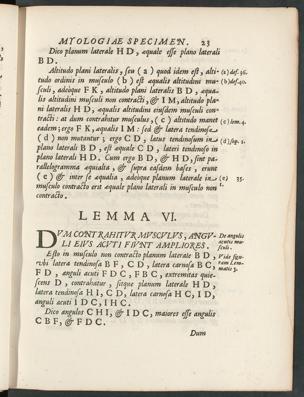 MYOLOGIAE SPECIMEN. 23
Dico planum laterale HD, aequale esse plano laterali
BD.
Altitudo plani lateralis, seu (a) quod idem est, alti- (a) def. 36.
tudo ordinis in musculo (b) est aequalis altitudini mu- (b) def. 40.
sculi, adeoque FK, altitudo plani lateralis BD, aequa-
lis altitudini musculi non contracti, & IM, altitudo pla-
ni lateralis HD, aequalis altitudini ejusdem musculi con-
tracti: at dum contrahitur musculus, (c) altitudo manet (c) lem. 4.
eadem; ergo FK, aequalis IM: sed & latera tendinosa
(d) non mutantur; ergo CD, latus tendinosum in (d) sup. 1.
plano laterali BD, est aequale CD, lateri tendinoso in
plano laterali HD. Cum ergo BD, & HD, sint pa-
rallelogramma aequialta, & supra easdem bases, erunt
(e) & inter se aequalia, adeoque planum laterale in (e) 35.
musculo contracto erit aequale plano laterali in musculo non
contracto.
LEMMA VI.
DUM CONTRAHITUR MUSCULUS, ANGU-
LI EIUS ACUTI FIUNT AMPLIORES.
De angulis
acutis mu-
sculi.
Esto in musculo non contracto planum laterale BD,
Vide figu-
ram Lem-
matis 5.
ubi latera tendinosa BF, CD, latera carnosa BC,
FD, anguli acuti FDC, FBC, extremitas quie-
scens D, contrahatur, sitque planum laterale HD,
latera tendinosa HI, CD, latera carnosa HC, ID,
anguli acuti IDC, IHC.
Dico angulos CHI, & IDC, maiores esse angulis
CBF, & FDC.
Dum